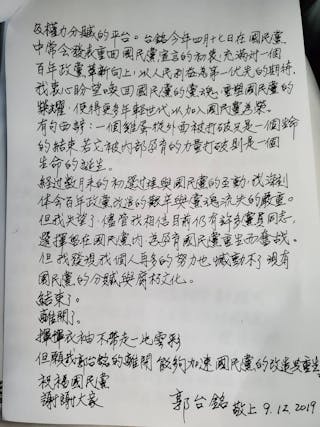 及權力分贓的平台。台銘今年四月十七日在國民黨
中常會發表重回國民黨宣言的初衷，充滿對一個
百年政黨革新向上，以人民利益為第一優先的期待，
我衷心盼望喚回國民黨的黨魂，重塑國民黨的
榮耀，使得更多年輕世代以加入國民黨為榮。
有句西諺：一個雞蛋從外面被打破只是一個生命
的結束，若是被內部孕育的力量打破則是一個
生命的誕生。
經過數月來的初選過程與國民黨的互動，我深刻
体会百年政黨改造的艱辛與黨魂流失的嚴重。
但我失望了，儘管我相信目前仍有許多黨員同志，
選擇留在國民黨內為孕育國民黨重生而奮战。
但我發現我個人再多的努力也撼動不了現有
國民黨的分贓與腐朽文化。
結束了。
離開了。
揮揮衣袖不帶走一地雲彩
但願我郭台銘的離開 能夠加速國民黨的改造與重生
祝福國民黨
謝謝大家
郭台銘 敬上 9.12.2019